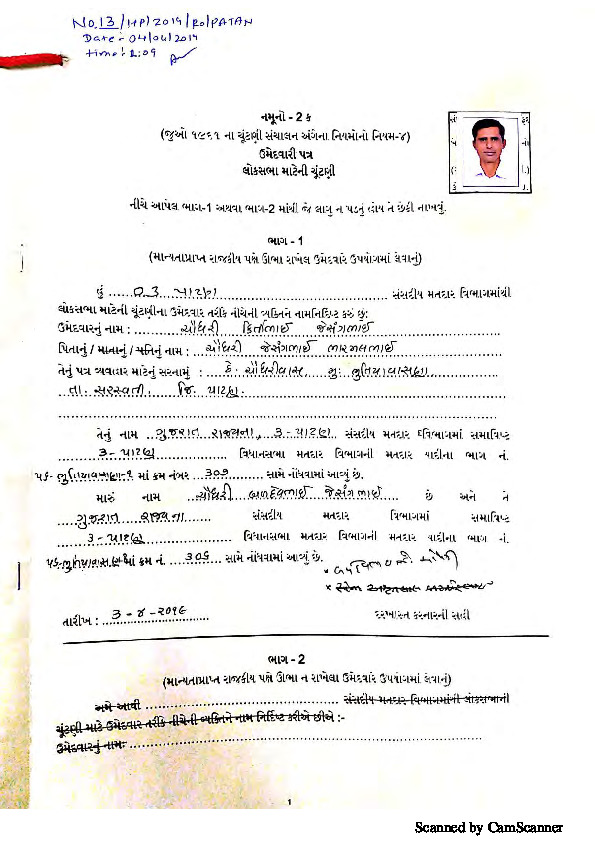 No.13/HP/2019/RO/PATAN
Date:- 04/04/2019
time:- 2:09
નમૂનો - 2 ક
(જુઓ ૧૯૬૧ ના ચૂંટણી સંચાલન અંગેના નિયમોનો નિયમ-૪)
ઉમેદવારી પત્ર
લોકસભા માટેની ચૂંટણી
નીચે આપેલ ભાગ-1 અથવા ભાગ-2 માંથી જે લાગુ ન પડતું હોય તે છેકી નાખવું.
ભાગ - 1
(માન્યતાપ્રાપ્ત રાજકીય પક્ષે ઊભા રાખેલ ઉમેદવારે ઉપયોગમાં લેવાનું)
હું ...... 03 પાટણ ...... સંસદીય મતદાર વિભાગમાંથી
લોકસભા માટેની ચૂંટણીના ઉમેદવાર તરીકે નીચેની વ્યક્તિને નામનિર્દિષ્ટ કરું છું:
ઉમેદવારનું નામ : ચૌધરી કિર્તીભાઈ જેસંગભાઈ
પિતાનું / માતાનું / પતિનું નામ : ચૌધરી જેસંગભાઈ ભારમલભાઈ
તેનું પત્ર વ્યવહાર માટેનું સરનામું : ઠે. ચૌધરીવાસ મુ: ભુતિયાવાસણા
તા. સરસ્વતી. જિ. પાટણ
તેનું નામ ગુજરાત રાજ્યના, 3-પાટણ સંસદીય મતદાર વિભાગમાં સમાવિષ્ટ
3-પાટણ વિધાનસભા મતદાર વિભાગની મતદાર યાદીના ભાગ નં.
માં ક્રમ નંબર 307 સામે નોંધવામાં આવ્યું છે.
મારું નામ ચૌધરી બળદેવભાઈ જેસંગભાઈ છે અને તે
ગુજરાત રાજ્યના સંસદીય મતદાર વિભાગમાં સમાવિષ્ટ
3-પાટણ વિધાનસભા મતદાર વિભાગની મતદાર યાદીના ભાગ નં.
માં ક્રમ નં. 306 સામે નોંધવામાં આવ્યું છે.
તારીખ : 3-૪-૨૦૧૯
દરખાસ્ત કરનારની સહી
ભાગ - 2
(માન્યતાપ્રાપ્ત રાજકીય પક્ષે ઊભા ન રાખેલા ઉમેદવારે ઉપયોગમાં લેવાનું)
અમે આથી ...... સંસદીય મતદાર વિભાગમાંની લોકસભાની
ચૂંટણી માટે ઉમેદવાર તરીકે નીચેની વ્યક્તિને નામ નિર્દિષ્ટ કરીએ છીએ :-
ઉમેદવારનું નામ:
1
Scanned by CamScanner